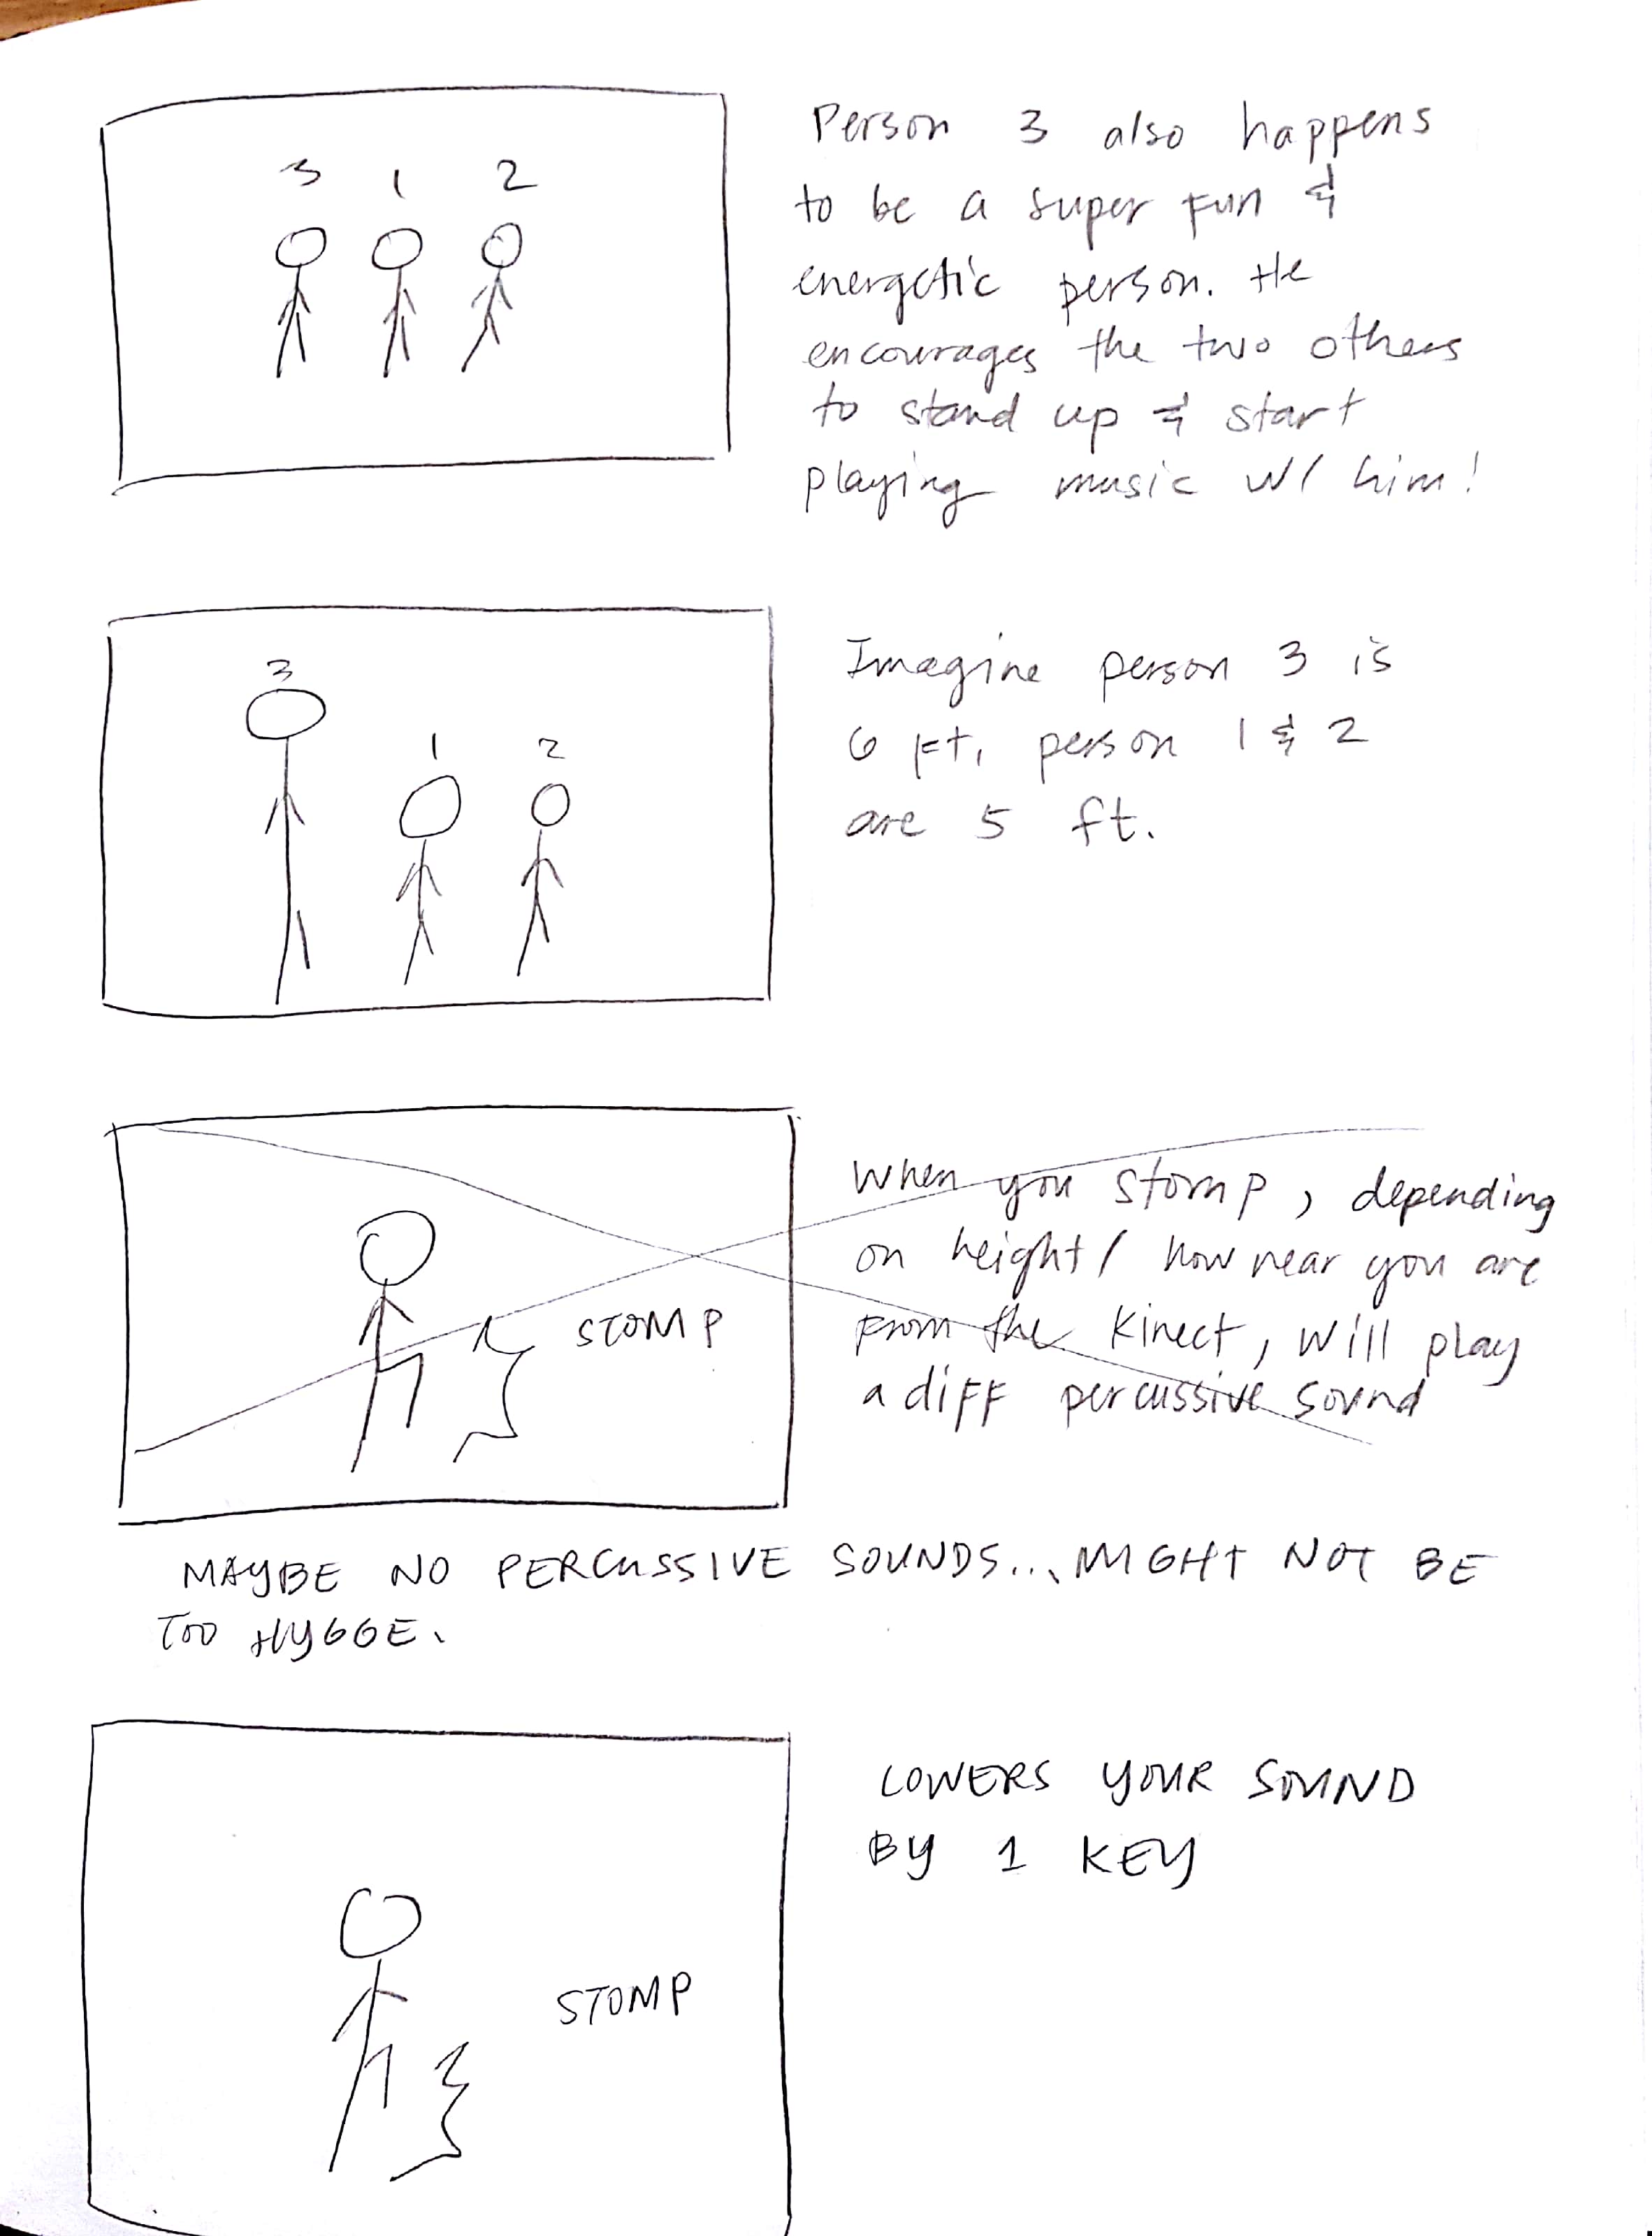 3 1 2
Person 3 also happens
to be a super fun &
energetic person. He
encourages the two others
to stand up & start
playing music w/ him!
3
1 2
Imagine person 3 is
6 ft, person 1 & 2
are 5 ft.
STOMP
When you stomp, depending
on height/ how near you are
from the Kinect, will play
a diff percussive sound
MAYBE NO PERCUSSIVE SOUNDS... MIGHT NOT BE
TOO HYGGE.
STOMP
LOWERS YOUR SOUND
BY 1 KEY